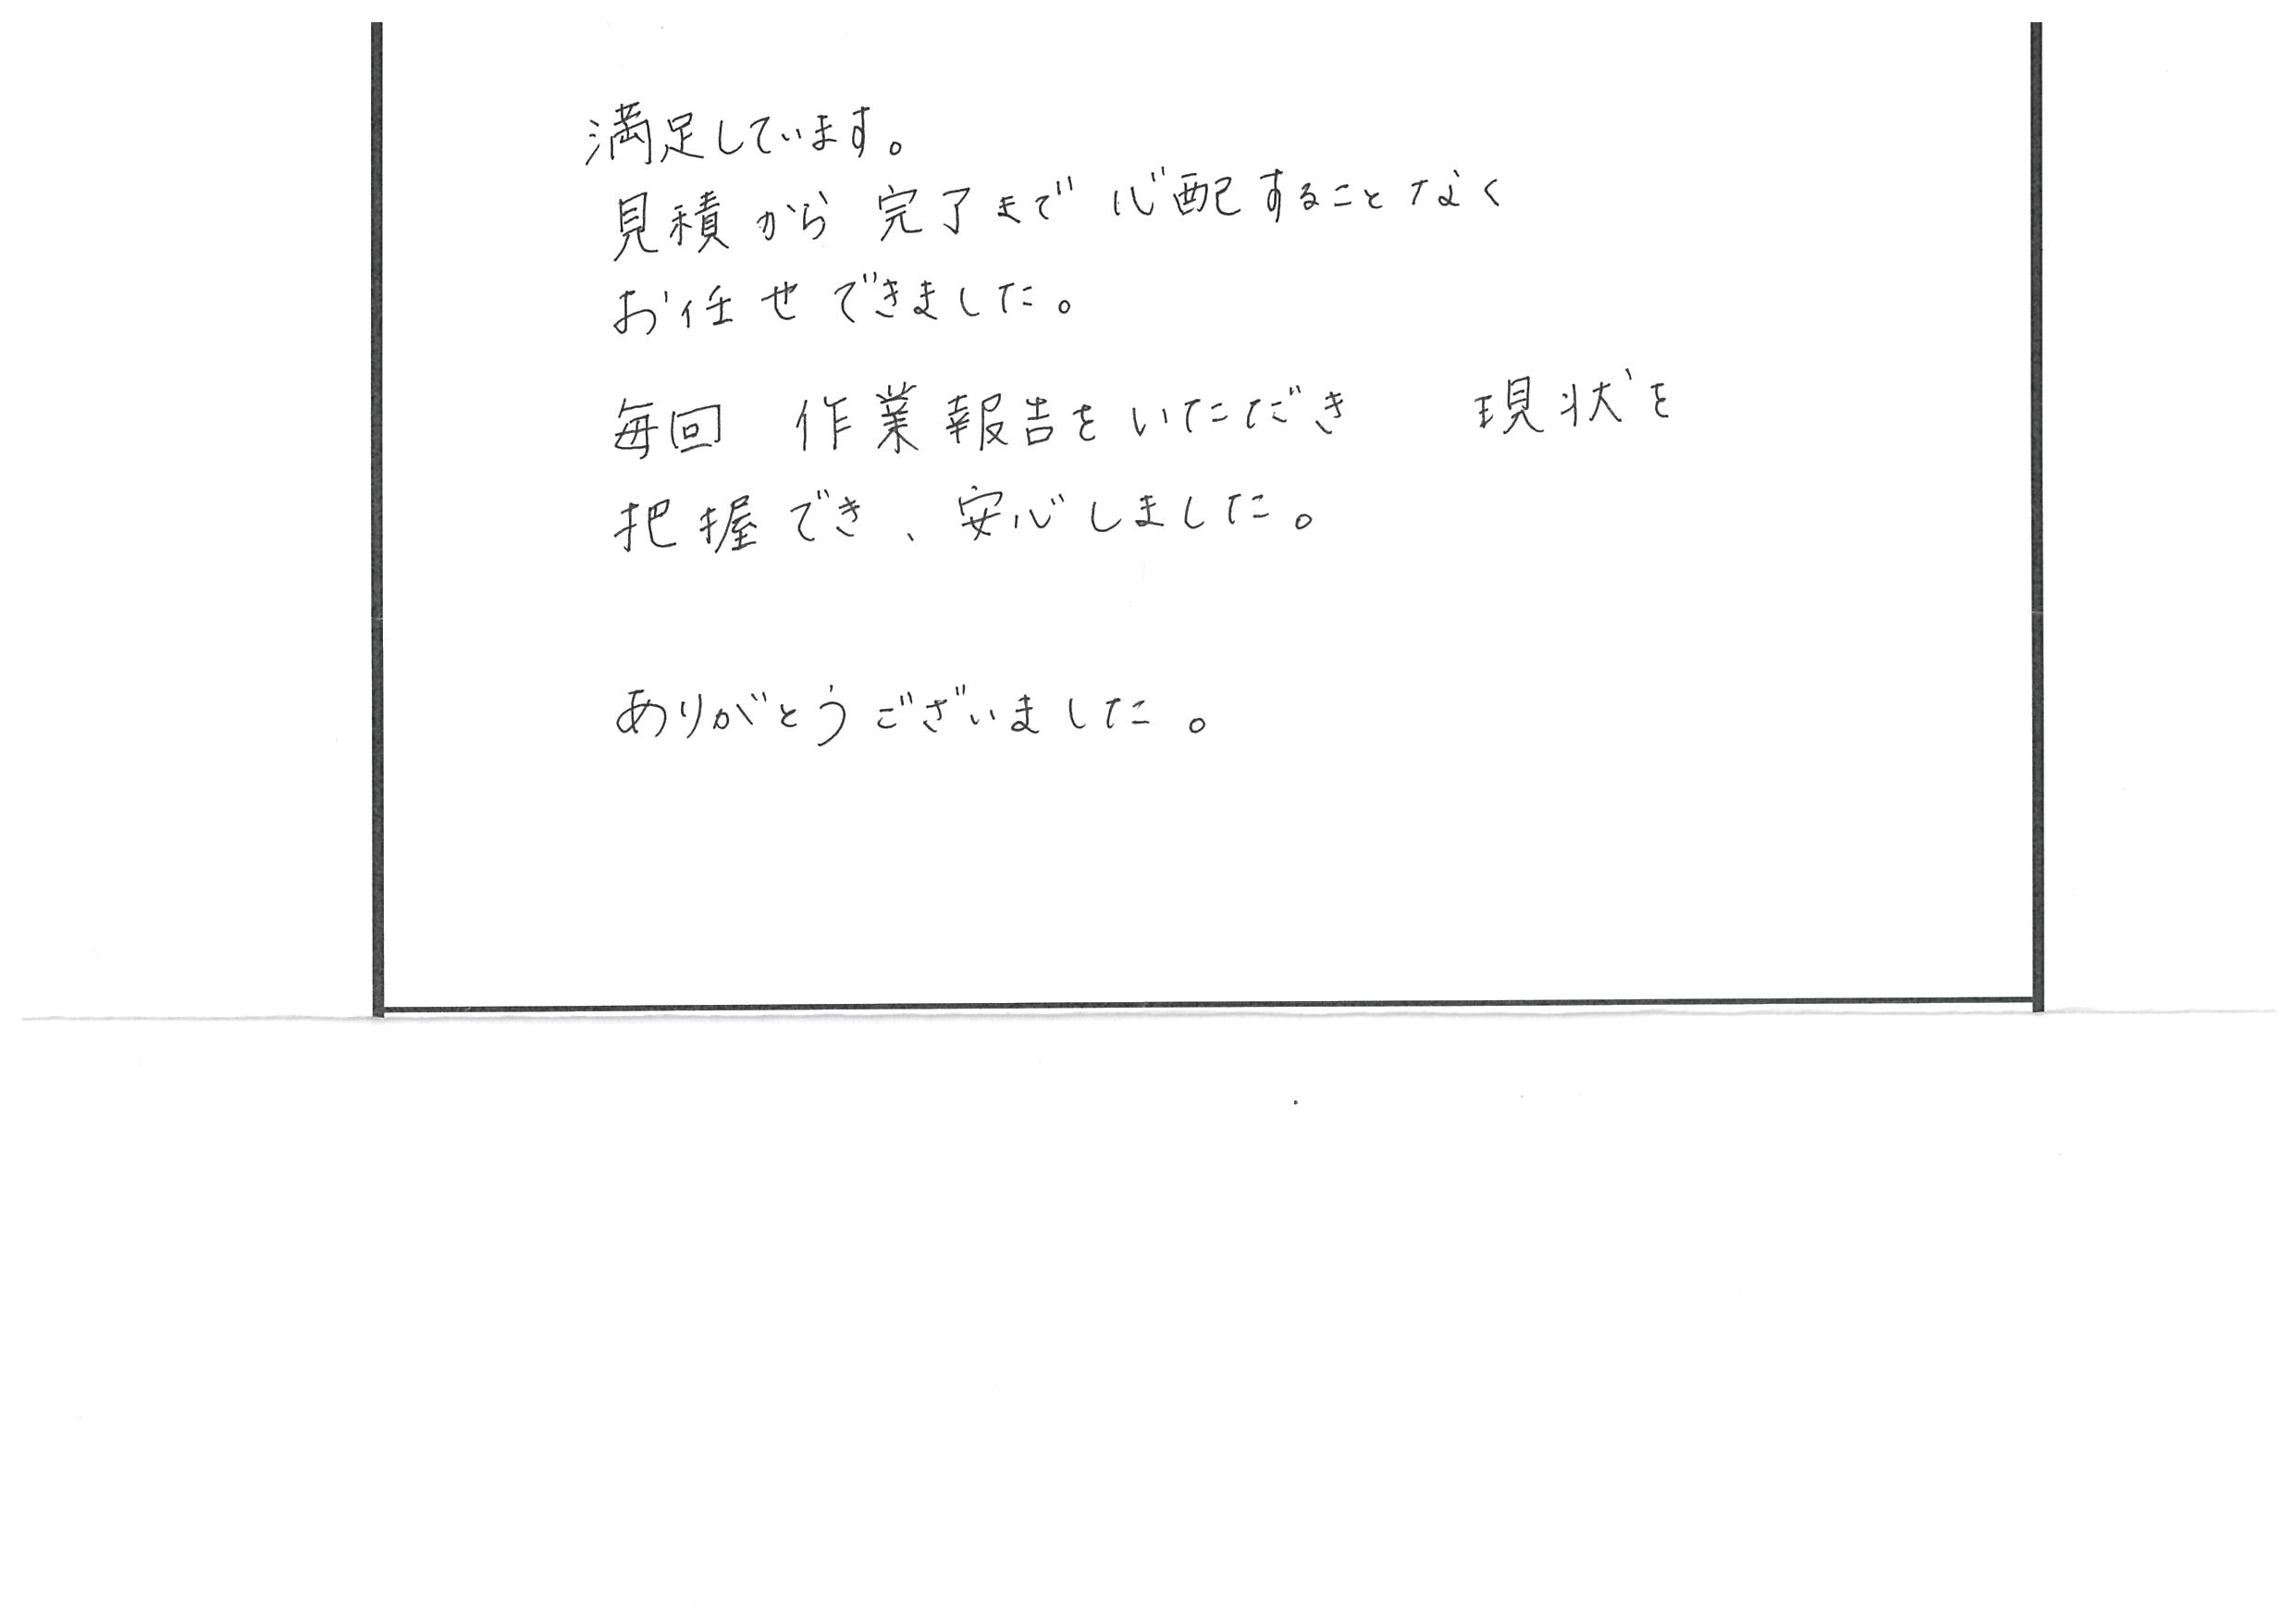 満足しています。
見積から完了まで心配することなく
お任せできました。
毎回 作業報告をいただき 現状を
把握でき、安心しました。
ありがとうございました。